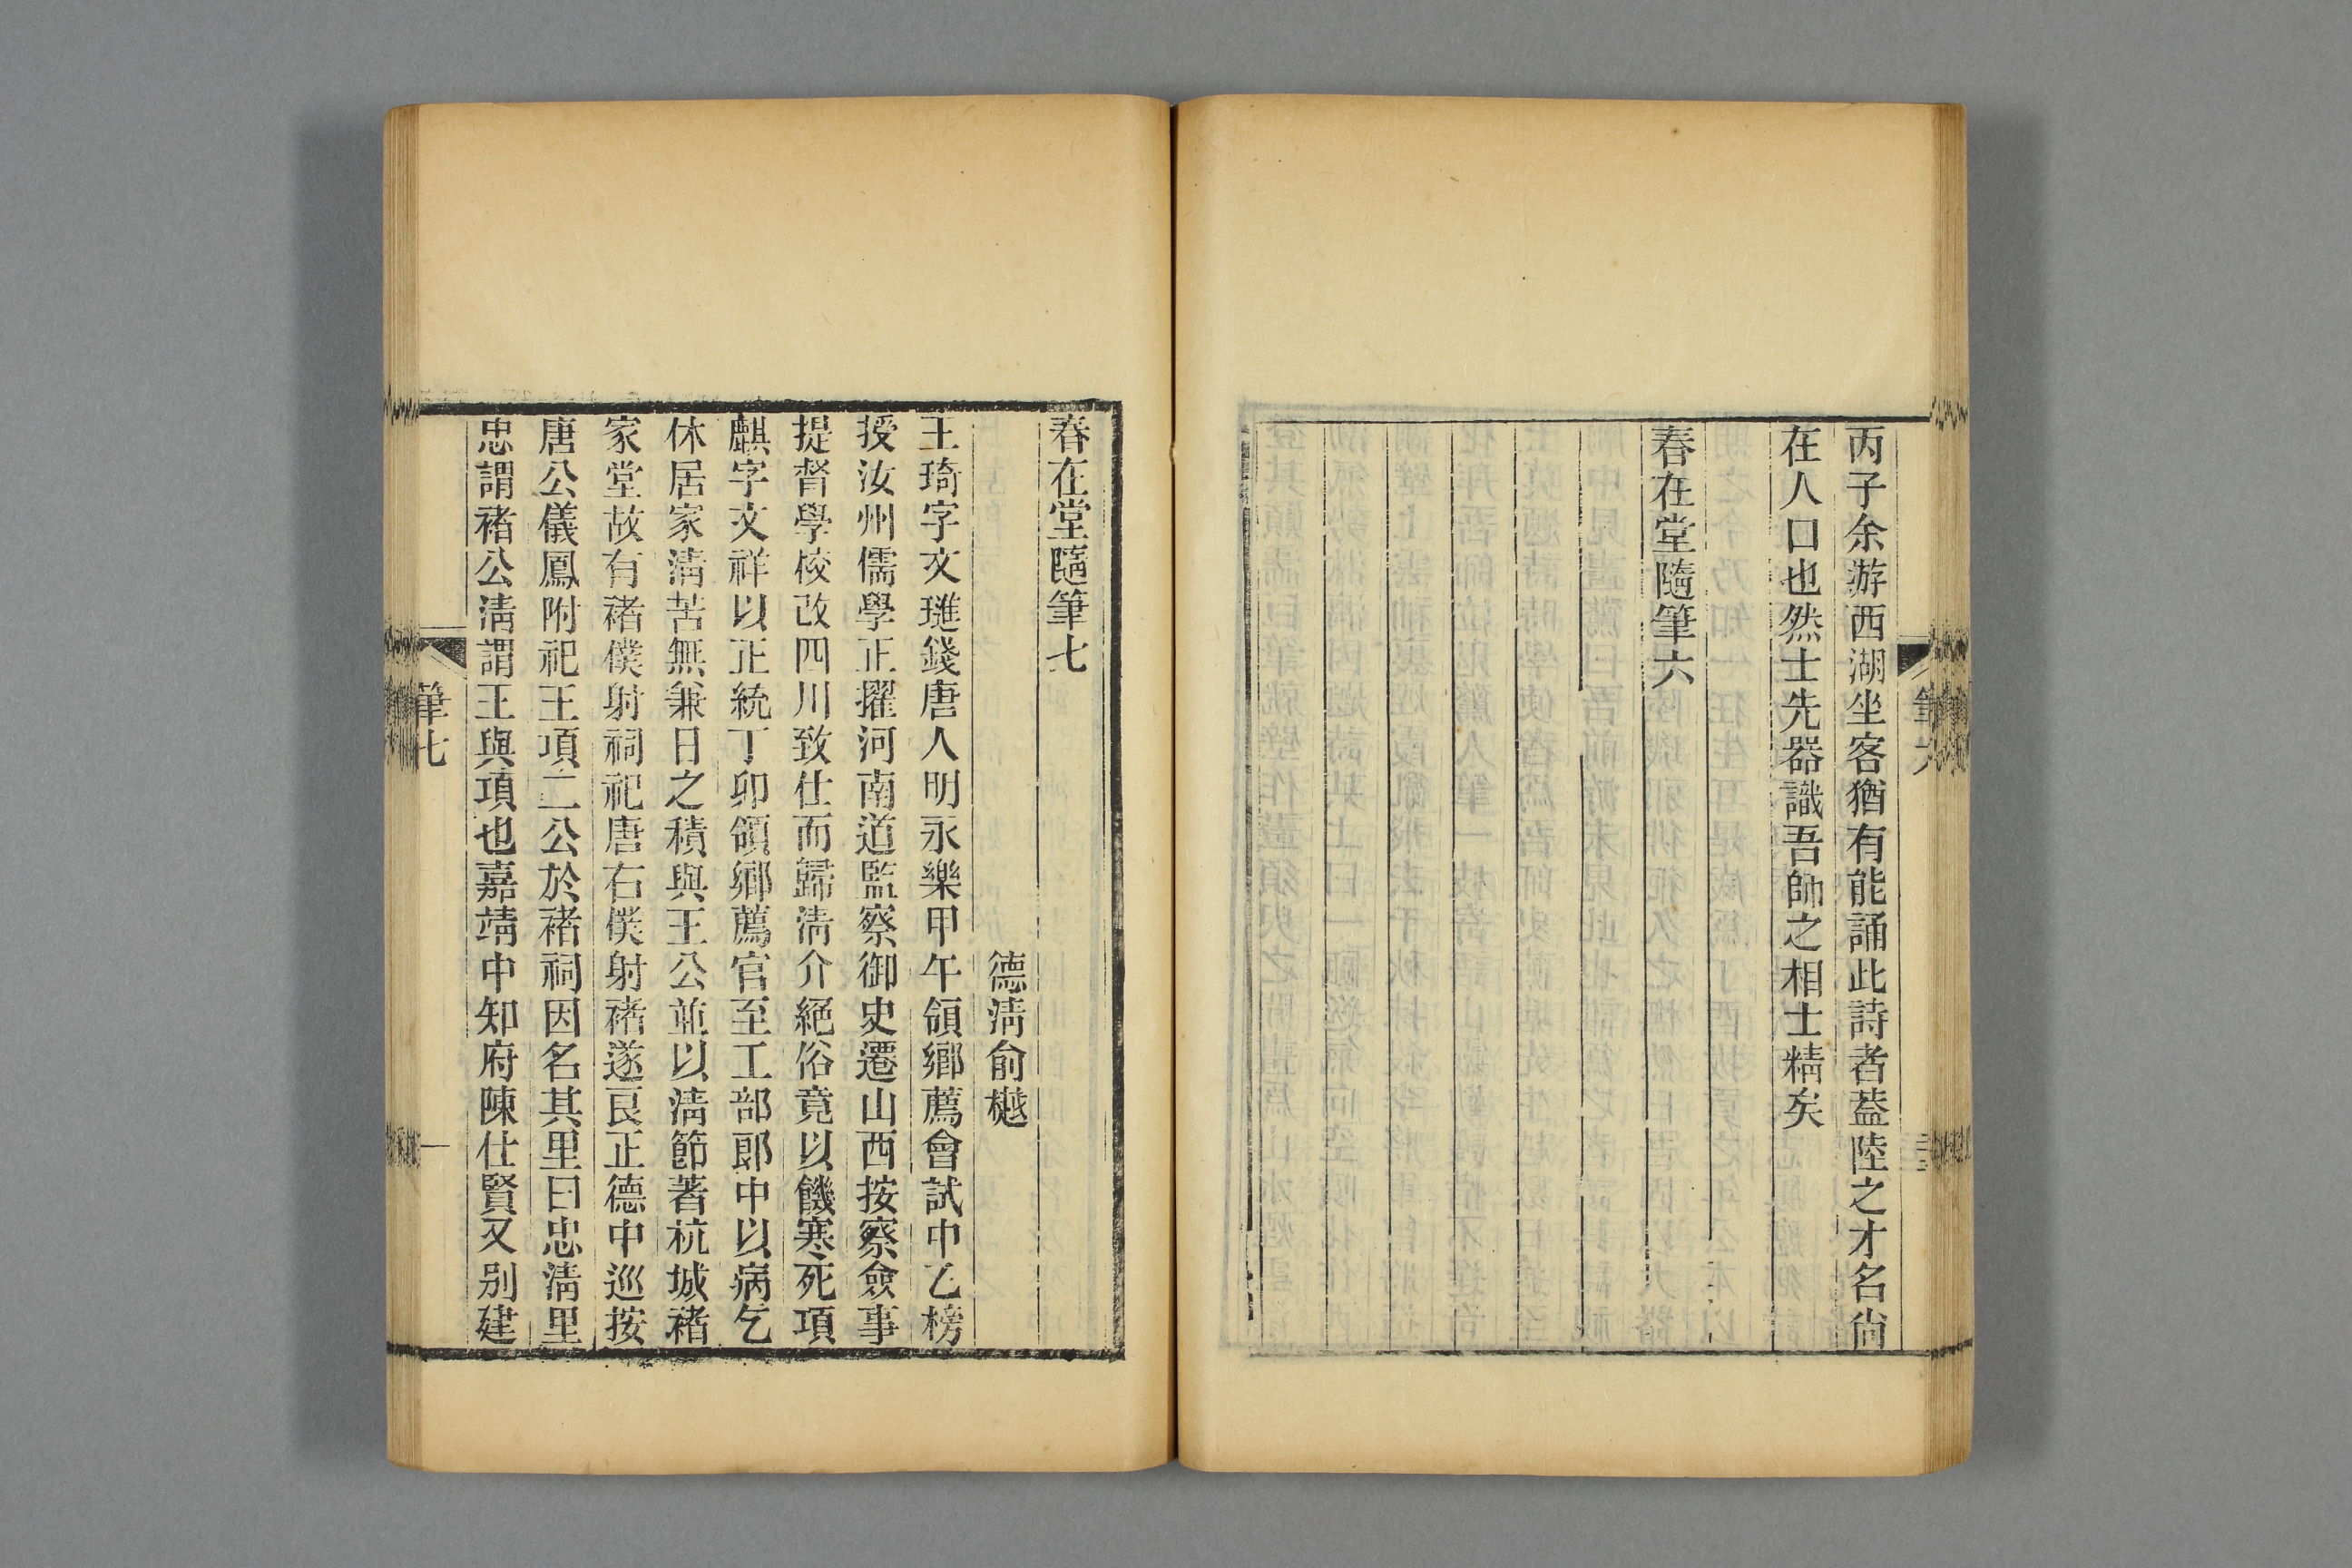 丙子余游西湖坐客猶有能誦此詩者葢陸之才名尙
在人口也然士先器識吾師之相士精矣
春在堂隨筆六
春在堂隨筆七
德淸俞樾
王琦字文璡錢唐人明永樂甲午領鄉薦會試中乙榜
授汝州儒學正擢河南道監察御史遷山西按察僉事
提督學校改四川致仕而歸淸介絕俗竟以饑寒死項
麒字文祥以正統丁卯領鄉薦官至工部郎中以病乞
休居家淸苦無兼日之積與王公並以淸節著杭城褚
家堂故有褚僕射祠祀唐右僕射褚遂良正德中巡按
唐公儀鳳附祀王項二公於褚祠因名其里曰忠淸里
忠謂褚公淸謂王與項也嘉靖中知府陳仕賢又别建
筆七
一